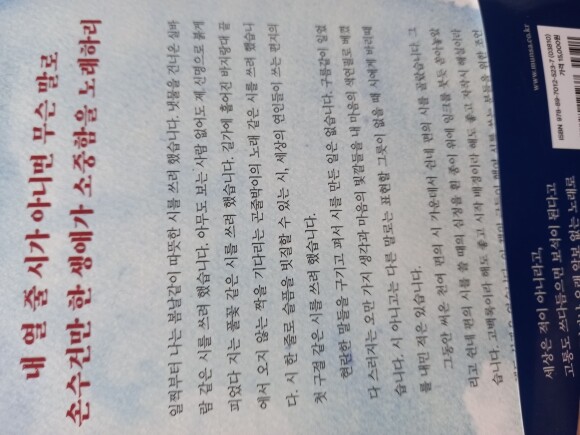 내 열 줄 시가 아니면 무슨 말로
손수건만 한 생애가 소중함을 노래하리
일찍부터 나는 봄날같이 따뜻한 시를 쓰려 했습니다. 냇물을 건너온 실바
람 같은 시를 쓰려 했습니다. 아무도 보는 사람 없어도 제 신명으로 붉게
피었다 지는 풀꽃 같은 시를 쓰려 했습니다. 길가에 흩어진 바지랑대 끝
에서 오지 않는 짝을 기다리는 곤줄박이의 노래 같은 시를 쓰려 했습니
다. 시 한 줄로 슬픔을 빗질할 수 있는 시, 세상의 연인들이 쓰는 편지의
첫 구절 같은 시를 쓰려 했습니다.
현란한 말들을 구기고 펴서 시를 만든 일은 없습니다. 구름같이 일었
다 스러지는 오만 가지 생각과 마음의 빛깔들을 내 마음의 색연필로 베꼈
습니다. 시 아니고는 다른 말로는 표현할 그릇이 없을 때 시에게 바치때
를 내민 적은 있습니다.
그동안 써온 천여 편의 시 가운데서 쉰네 편의 시를 골랐습니다. 그
리고 쉰네 편의 시를 쓸 때의 심정을 흰 종이 위에 잉크를 붓듯 쏟아놓았
습니다. 고백록이라 해도 좋고 시작 배경이라 해도 좋고 시작시 해설이라
www.munsa.co.kr
ISBN 978-89-7012-923-7 (03810)
가격 15,000원
세상은 적이 아니라고,
고통도 쓰다듬으면 보석이 된다고